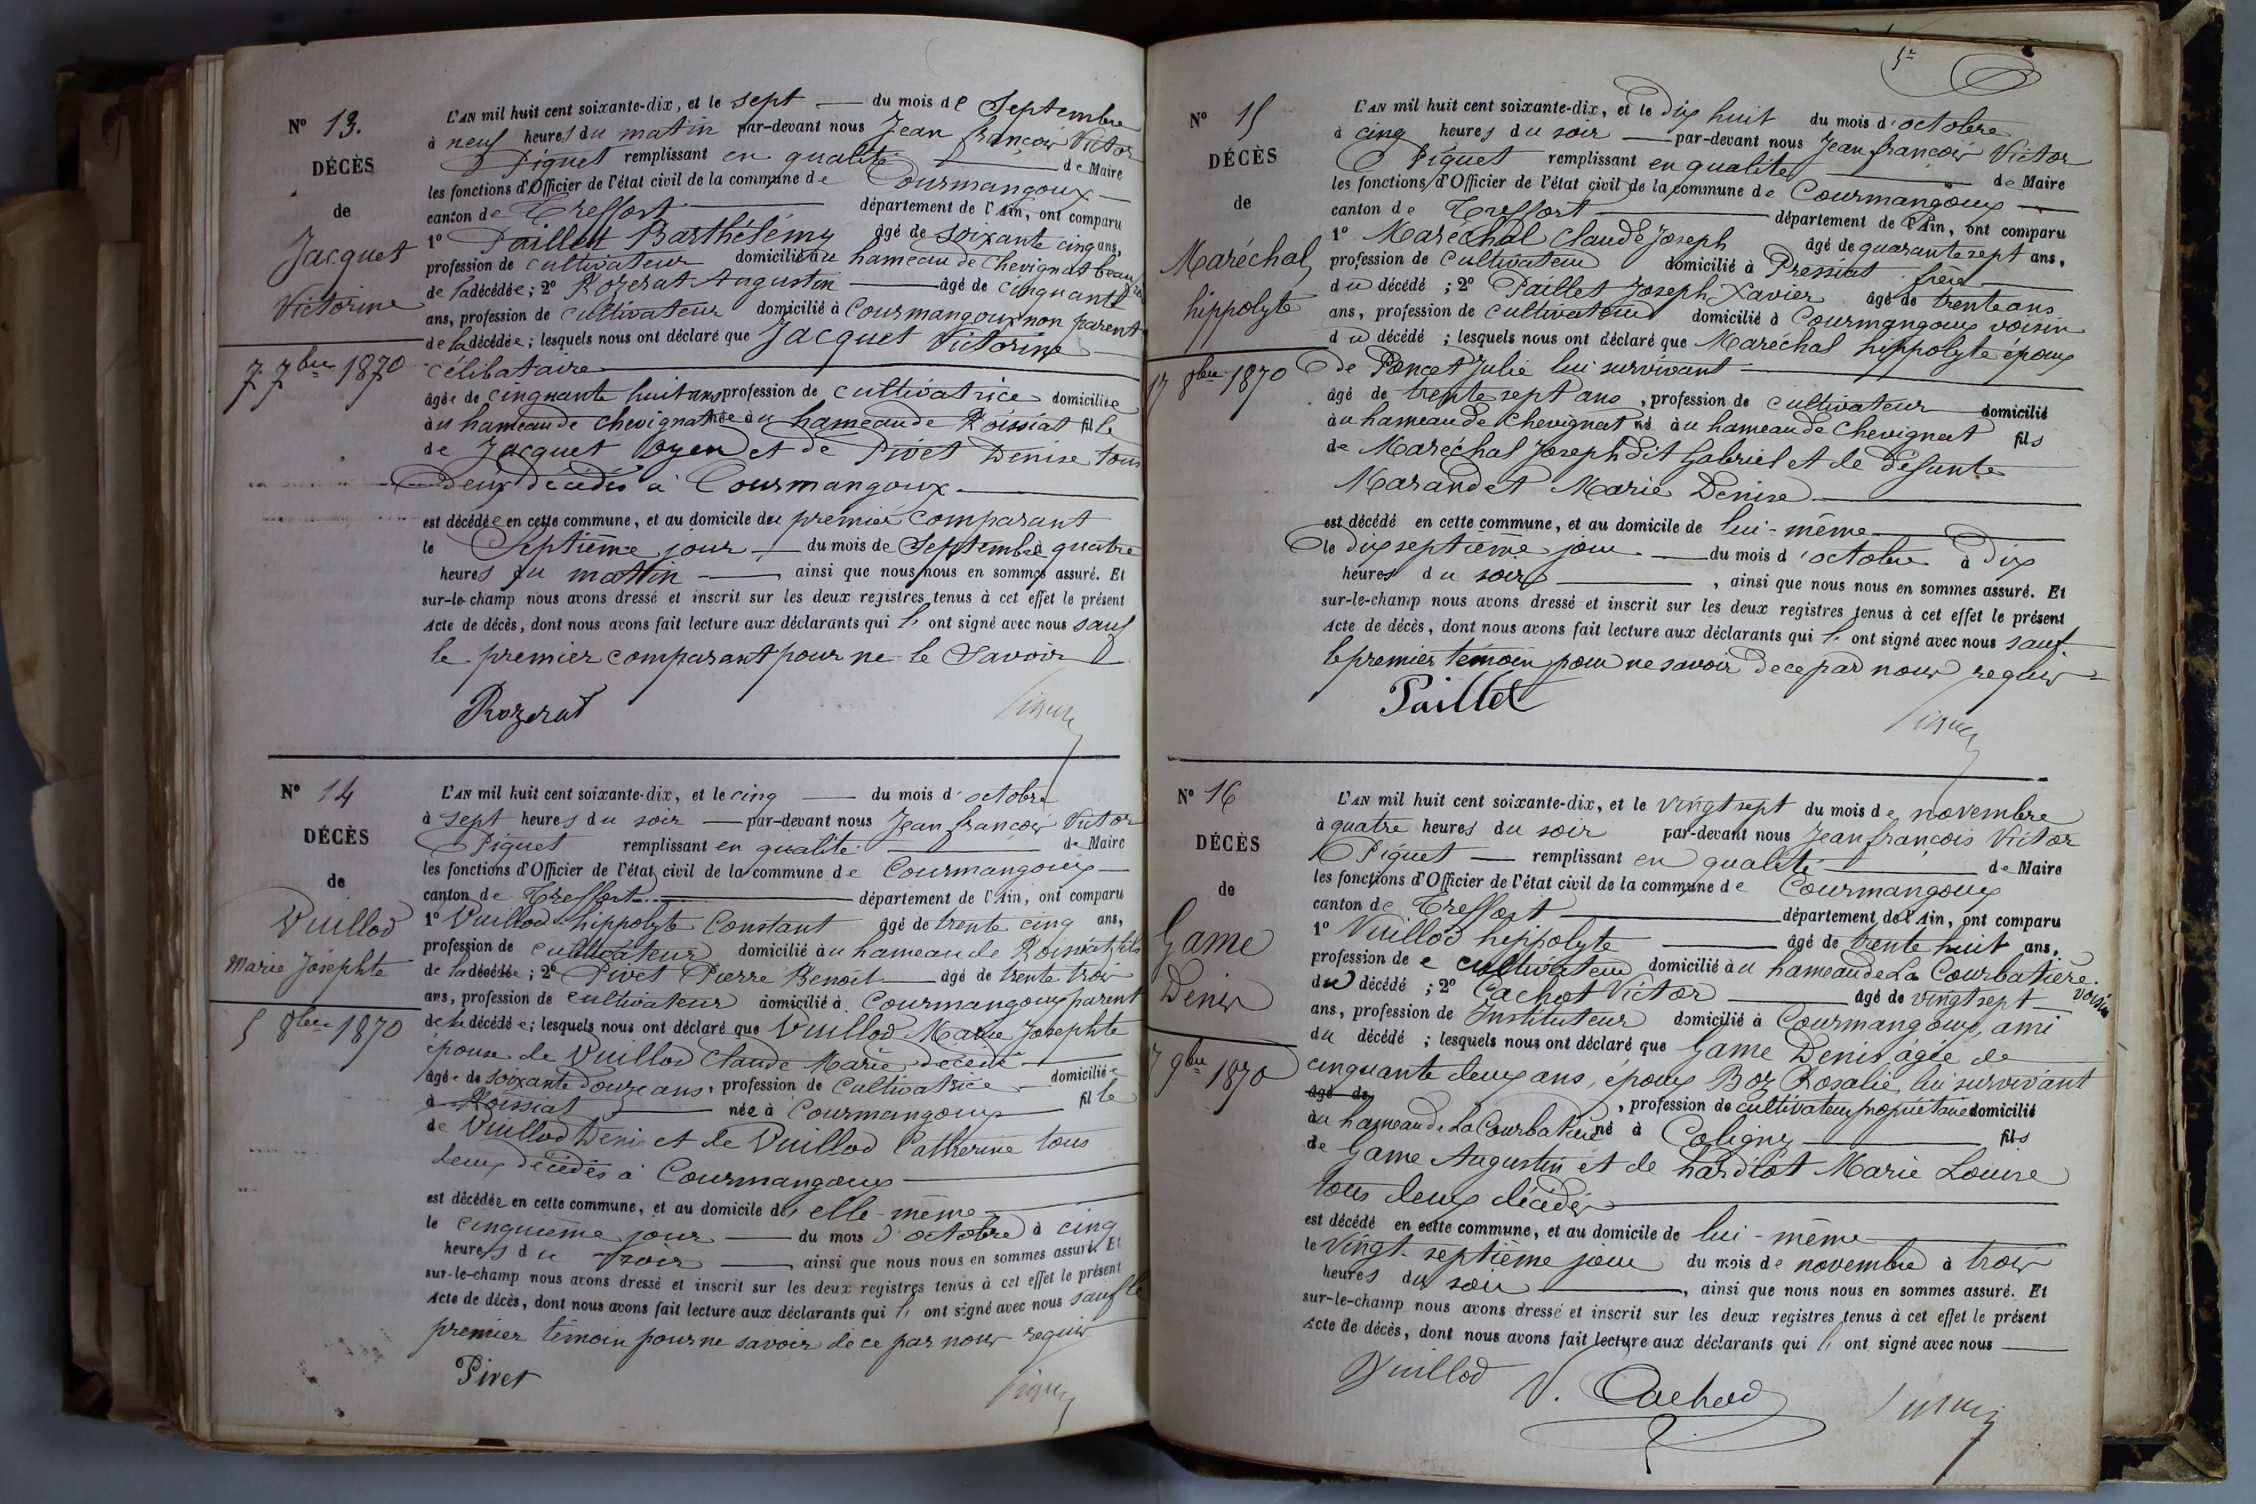 N° 13.
DÉCÈS
de
Jacquet
Victorine
7 7bre 1870
L'AN mil huit cent soixante-dix, et le sept du mois de Septembre
à neuf heures du matin par-devant nous Jean françois Victor
Piquet remplissant en qualité de Maire
les fonctions d'Officier de l'état civil de la commune de Courmangoux
canton de Treffort département de l'Ain, ont comparu
1° Paillet Barthélémy âgé de soixante cinq ans,
profession de cultivateur domicilié au hameau de Chevignat beau
de la décédée; 2° Rozerat Augustin âgé de cinquante
ans, profession de cultivateur domicilié à Courmangoux non parent
de la décédée; lesquels nous ont déclaré que Jacquet Victorine
célibataire
âgée de cinquante huit ans profession de cultivatrice domiciliée
au hameau de Chevignat née au hameau de Roissiat fille
de Jacquet et de Pivet Denise tous
Deux décédés à Courmangoux
est décédée en cette commune, et au domicile du premier comparant
le Septième jour du mois de Septembre à quatre
heures du matin ainsi que nous nous en sommes assuré. Et
sur-le-champ nous avons dressé et inscrit sur les deux registres tenus à cet effet le présent
Acte de décès, dont nous avons fait lecture aux déclarants qui l' ont signé avec nous sauf
le premier comparant pour ne le Savoir
Rozerat
Piquet
N° 14
DÉCÈS
de
Vuillod
Marie Josephte
5 8bre 1870
L'AN mil huit cent soixante-dix, et le cinq du mois d'octobre
à sept heures du soir par-devant nous Jean françois Victor
Piquet remplissant en qualité de Maire
les fonctions d'Officier de l'état civil de la commune de Courmangoux
canton de Treffort département de l'Ain, ont comparu
1° Vuillod hippolyte Constant âgé de trente cinq ans,
profession de cultivateur domicilié au hameau de Roissiat, fils
de la décédée; 2° Pivet Pierre Benoit âgé de trente trois
ans, profession de cultivateur domicilié à Courmangoux parent
de la décédée; lesquels nous ont déclaré que Vuillod Marie Josephte
épouse de Vuillod Claude Marie décédé
âgée de soixante douze ans, profession de Cultivatrice domiciliée
à Roissiat née à Courmangoux fille
de Vuillod Denis et de Vuillod Catherine tous
deux décédés à Courmangoux
est décédée en cette commune, et au domicile d' elle-même
le cinquième jour du mois d'octobre à cinq
heures du soir ainsi que nous nous en sommes assuré. Et
sur-le-champ nous avons dressé et inscrit sur les deux registres tenus à cet effet le présent
Acte de décès, dont nous avons fait lecture aux déclarants qui l' ont signé avec nous sauf le
premier témoin pour ne savoir de ce par nous requis
Pivet
Piquet
N° 15
DÉCÈS
de
Maréchal
hippolyte
17 8bre 1870
L'AN mil huit cent soixante-dix, et le Dix huit du mois d'octobre
à cinq heures du soir par-devant nous Jean françois Victor
Piquet remplissant en qualité de Maire
les fonctions d'Officier de l'état civil de la commune de Courmangoux
canton de Treffort département de l'Ain, ont comparu
1° Maréchal Claude Joseph âgé de quarante sept ans,
profession de Cultivateur domicilié à Pressiat frère
du décédé; 2° Paillet Joseph Xavier âgé de trente ans
ans, profession de cultivateur domicilié à Courmangoux voisin
du décédé; lesquels nous ont déclaré que Maréchal hippolyte époux
de Poncet Julie lui survivant
âgé de trente sept ans, profession de cultivateur domicilié
au hameau de Chevignat né au hameau de Chevignat fils
de Maréchal Joseph dit Gabriel et de défunte
Marandet Marie Denise
est décédé en cette commune, et au domicile de lui-même
le dix septième jour du mois d'octobre à dix
heures du soir, ainsi que nous nous en sommes assuré. Et
sur-le-champ nous avons dressé et inscrit sur les deux registres tenus à cet effet le présent
Acte de décès, dont nous avons fait lecture aux déclarants qui l' ont signé avec nous sauf
le premier témoin pour ne savoir de ce par nous requis
Paillet
Piquet
N° 16
DÉCÈS
de
Game
Denis
7 9bre 1870
L'AN mil huit cent soixante-dix, et le vingt sept du mois de novembre
à quatre heures du soir par-devant nous Jean françois Victor
Piquet remplissant en qualité de Maire
les fonctions d'Officier de l'état civil de la commune de Courmangoux
canton de Treffort département de l'Ain, ont comparu
1° Vuillod hippolyte âgé de trente huit ans,
profession de cultivateur domicilié au hameau de La Courbatière voisin
du décédé; 2° Cachot Victor âgé de vingt sept
ans, profession de Instituteur domicilié à Courmangoux, ami
du décédé; lesquels nous ont déclaré que Game Denis, âgée de
cinquante deux ans, époux Boz Rosalie, lui survivant
âgé de, profession de cultivateur propriétaire domicilié
au hameau de La Courbatière né à Coligny fils
de Game Augustin et de hardilot Marie Louise
tous deux décédés
est décédé en cette commune, et au domicile de lui-même
le Vingt-septième jour du mois de novembre à trois
heures du soir, ainsi que nous nous en sommes assuré. Et
sur-le-champ nous avons dressé et inscrit sur les deux registres tenus à cet effet le présent
Acte de décès, dont nous avons fait lecture aux déclarants qui l' ont signé avec nous
Vuillod
V. Cachod
Piquet